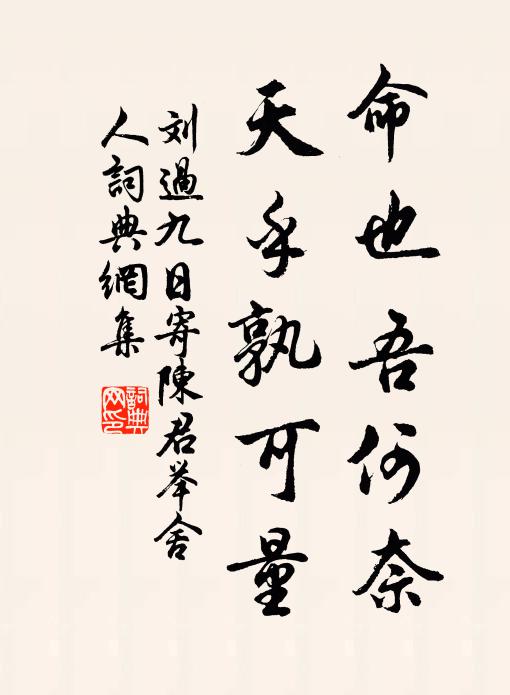 命也吾何奈
天乎孰可量
刘過九日寄陳君举舍
人詞典網集
詞典
网印